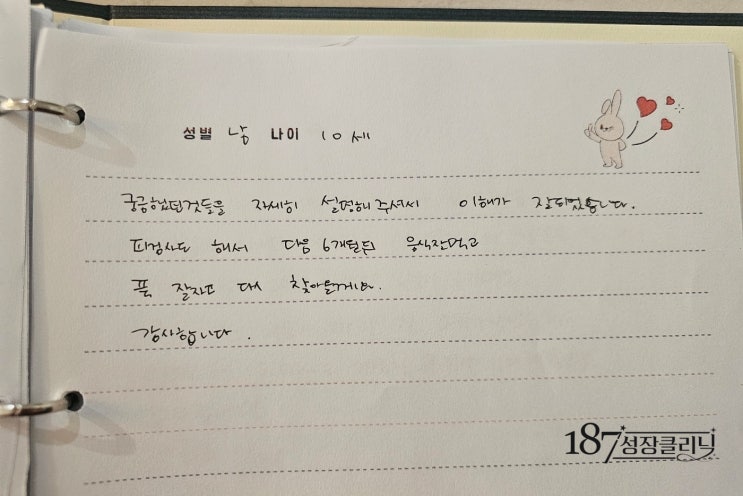 성별 남 나이 10세
궁금했던것들을 자세히 설명해주셔서 이해가 잘되었습니다.
피검사도 해서 다음 6개월뒤 음식잘먹고
푹 잘자고 다시 찾아올게요.
감사합니다.
187 성장클리닉